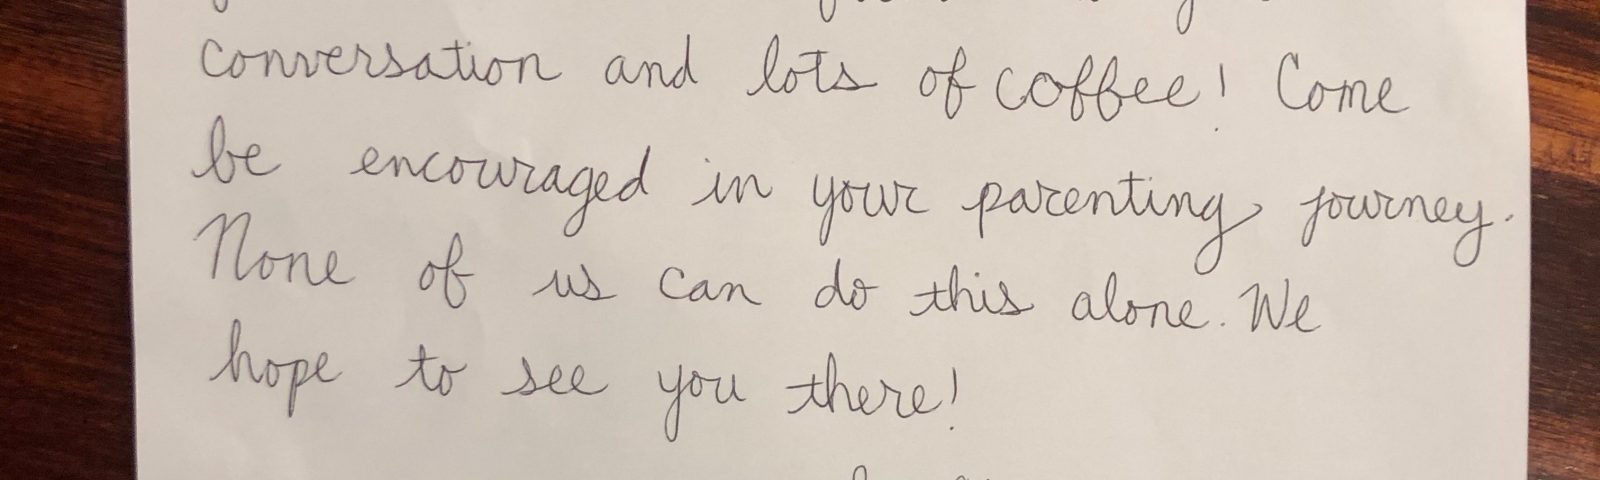 conversation and lots of coffee! Come
be encouraged in your parenting journey.
None of us can do this alone. We
hope to see you there!